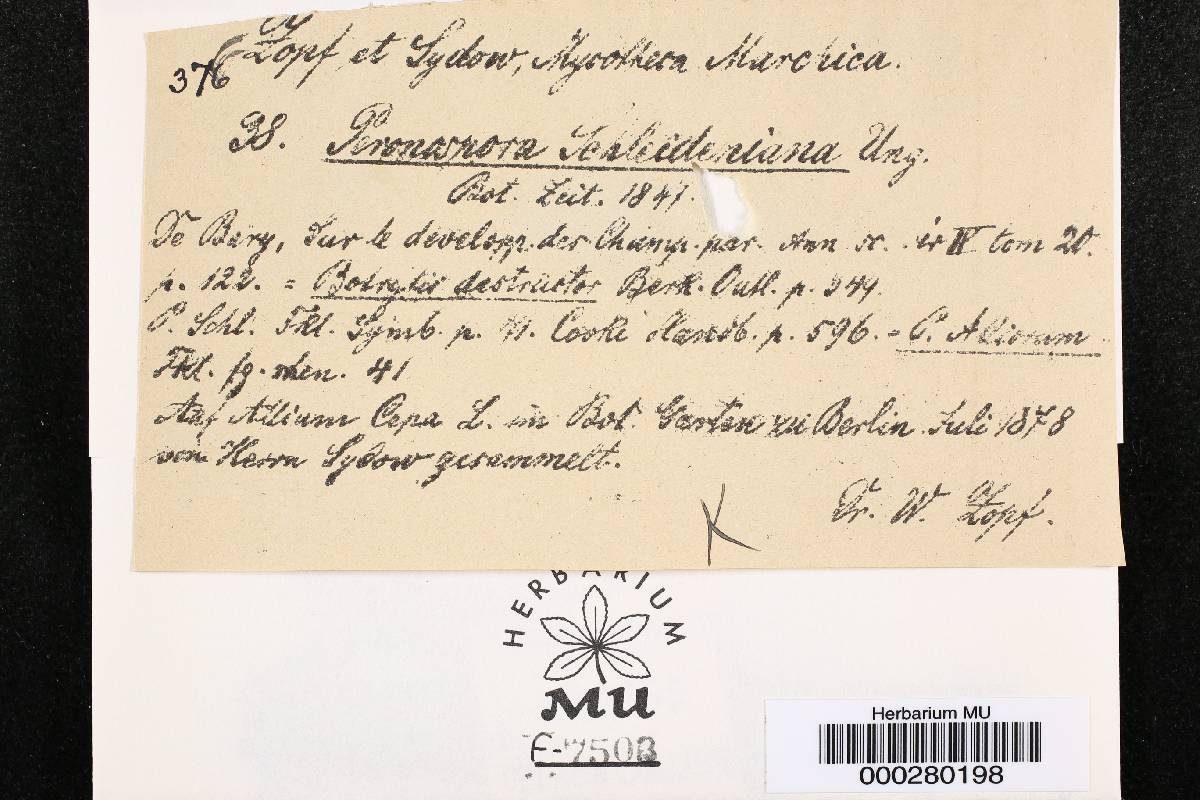 376 Zopf et Sydow, Mycotheca Marchica.
38. Peronospora Schleideniana Ung.
Bot. Zeit. 1847.
De Bary, Sur le developp. des Champ. par. Ann sc. IV tom 20.
p. 122. = Botrytis destructor Berk. Outl. p. 349.
P. Schl. Fkl. Symb. p. Cooke Handb. p. 596. = P. Alliorum
Fkl. fg. rhen. 41
Auf Allium Cepa L. im Bot. Garten zu Berlin Juli 1878
von Herrn Sydow gesammelt.
Dr. W. Zopf.
HERBARIUM
MU
F-7503
Herbarium MU
000280198